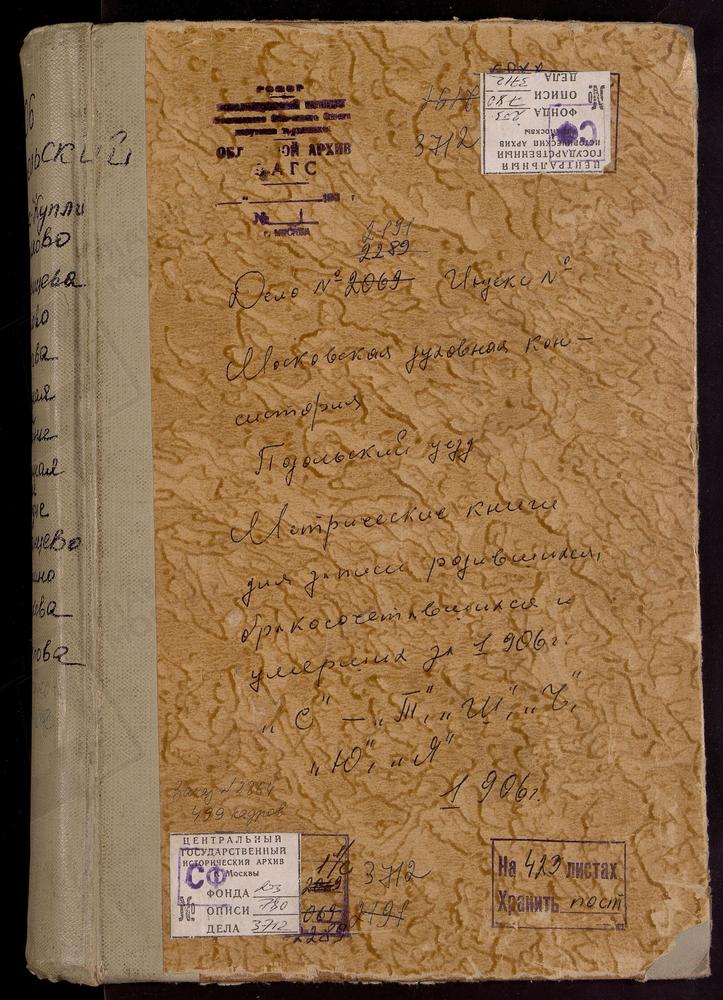 ОБЛ ОЙ АРХИВ
ЗАГС
№ 1
г. МОСКВА
3712
ЦЕНТРАЛЬНЫЙ
ГОСУДАРСТВЕННЫЙ
ИСТОРИЧЕСКИЙ АРХИВ
Москвы
СФ
ФОНДА 203
№ ОПИСИ 780
ДЕЛА 3712
2191
2289
Дело № 2069 Индекс №
Московская духовная кон-
систория
Подольский уезд
Метрические книги
для записи родившихся,
бракосочетавшихся и
умерших за 1906г.
„С" – „Т", „Ш", „Ч",
„Ю", „Я"
1906г.
Заказ №2884
499 кадров
ЦЕНТРАЛЬНЫЙ
ГОСУДАРСТВЕННЫЙ
ИСТОРИЧЕСКИЙ АРХИВ
г. Москвы
СФ
ФОНДА 203
№ ОПИСИ 780
ДЕЛА 3712
3712
2191
2289
На 423 листах
Хранить пост